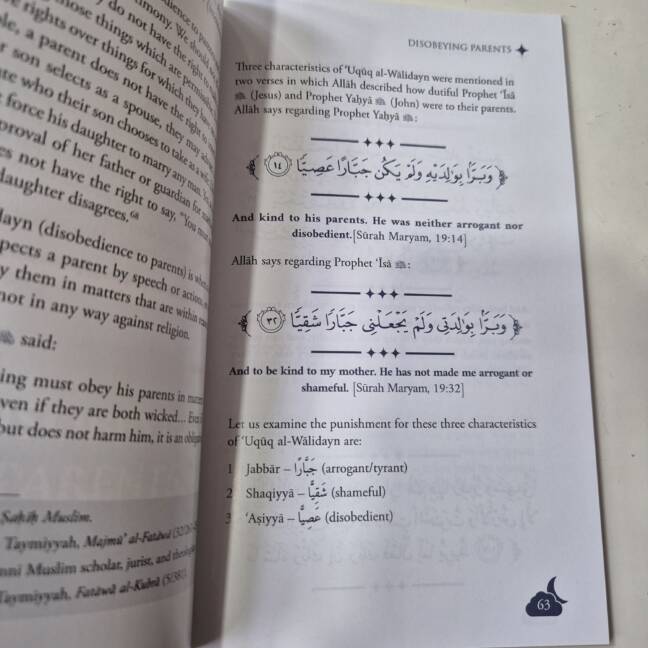 do not have the right to
rights over things for which they have
those things which are permissible
a parent does not have the right to
son selects as a spouse, they may
who their son chooses to take as a
force his daughter to marry any man.
of her father or guardian for
not have the right to say, "You must
daughter disagrees.⁶⁸
(disobedience to parents) is
a parent by speech or action,
them in matters that are within
not in any way against religion.
ﷺ said:
must obey his parents in
if they are both wicked... Even
but does not harm him, it is an
Ṣaḥīḥ Muslim.
Taymiyyah, Majmū' al-Fatāwā
Muslim scholar, jurist, and
Taymiyyah, Fatāwā al-Kubrā
DISOBEYING PARENTS
Three characteristics of 'Uqūq al-Wālidayn were mentioned in
two verses in which Allāh described how dutiful Prophet 'Īsā
(Jesus) and Prophet Yaḥyā (John) were to their parents.
Allāh says regarding Prophet Yaḥyā :
﴿ وَبَرًّۢا بِوَٰلِدَيْهِ وَلَمْ يَكُن جَبَّارًا عَصِيًّا ١٤ ﴾
And kind to his parents. He was neither arrogant nor
disobedient.[Sūrah Maryam, 19:14]
Allāh says regarding Prophet 'Īsā :
﴿ وَبَرًّۢا بِوَٰلِدَتِى وَلَمْ يَجْعَلْنِى جَبَّارًا شَقِيًّا ٣٢ ﴾
And to be kind to my mother. He has not made me arrogant or
shameful. [Sūrah Maryam, 19:32]
Let us examine the punishment for these three characteristics
of 'Uqūq al-Wālidayn are:
1 Jabbār – جَبَّارًا (arrogant/tyrant)
2 Shaqiyyā – شَقِيًّا (shameful)
3 'Aṣiyyā – عَصِيًّا (disobedient)
63